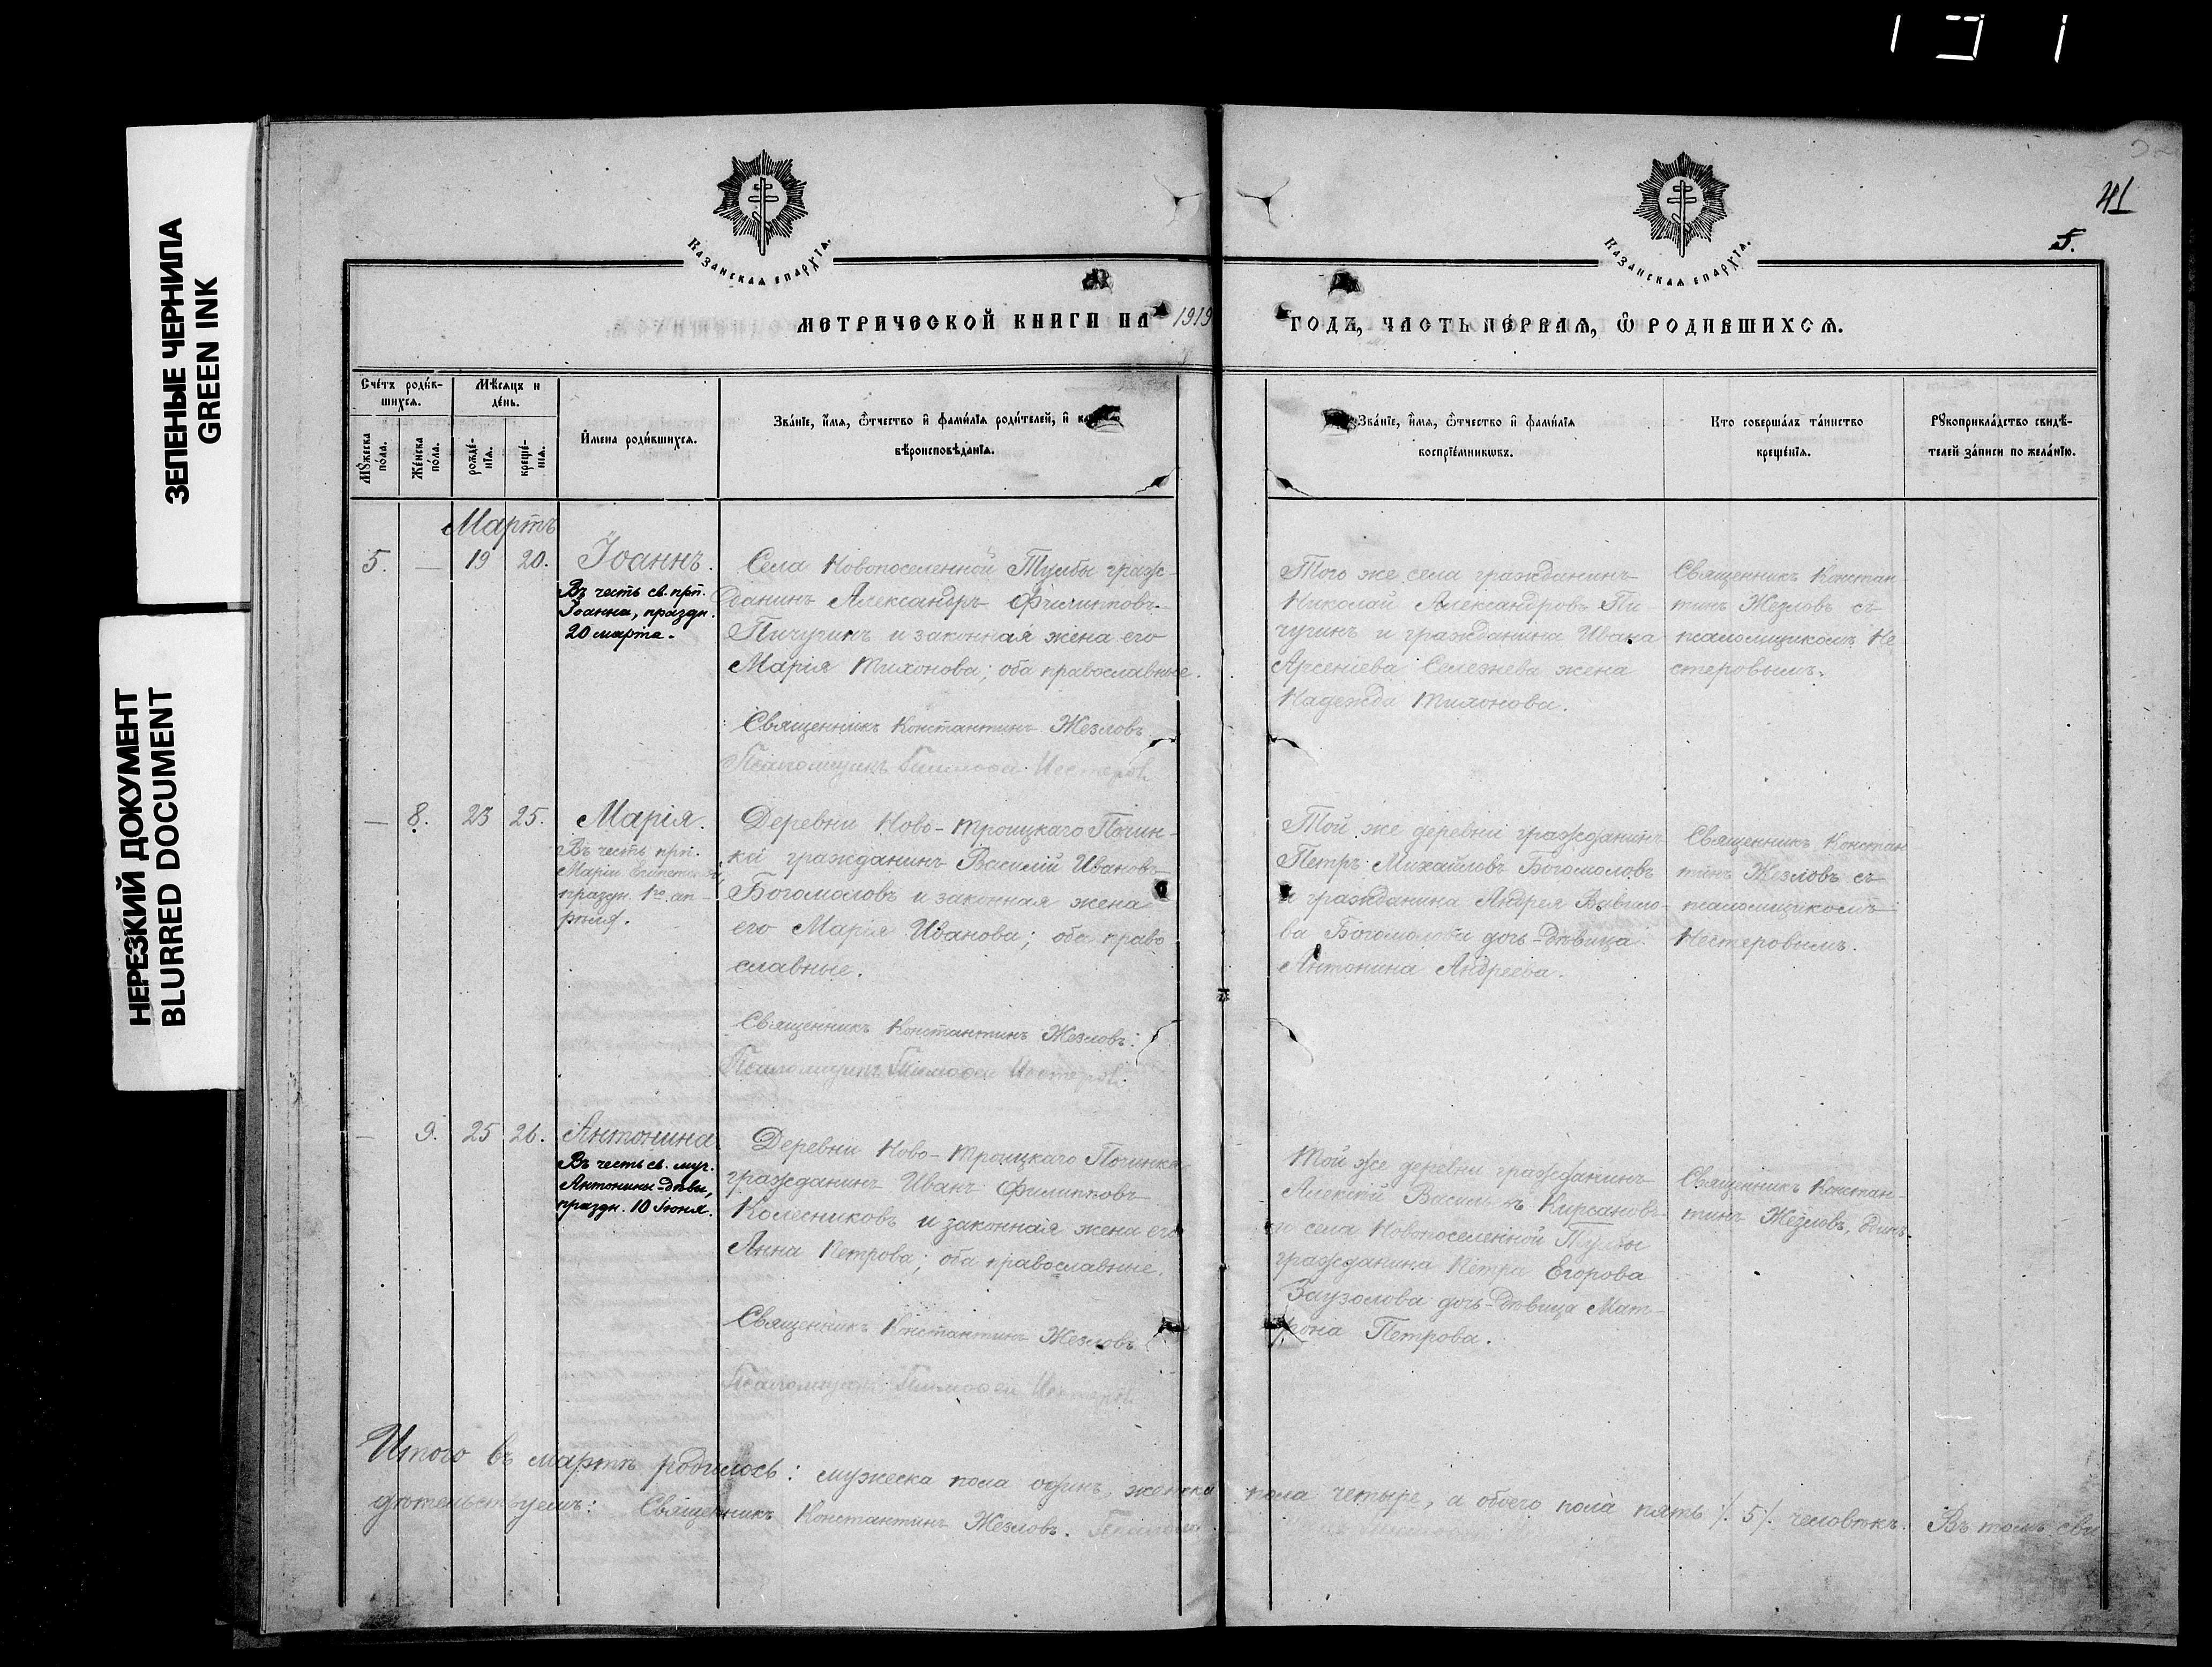 41
5.
Казанская епархїѧ.
Казанская епархїѧ.
МЕТРИЧЕСКОЙ КНИГИ НА 1919
ГОДЪ, ЧАСТЬ ПЕРВАЯ, Ѽ РОДИВШИХСЯ.
ЗЕЛЕНЫЕ ЧЕРНИЛА
GREEN INK
НЕРЕЗКИЙ ДОКУМЕНТ
BLURRED DOCUMENT
Сче́тъ роди́в-
шихсѧ.
Мѣ́сѧцъ и
де́нь.
Мꙋ́жеска
по́ла.
Же́нска
по́ла.
рожде́-
нїѧ.
креще́-
нїѧ.
И҆мена роди́вшихсѧ.
Зва́нїе, и҆́мѧ, ѻ҆́тчество и҆ фами́лїѧ роди́телей, и҆
вѣроисповѣ́данїѧ.
Зва́нїе, и҆́мѧ, ѻ҆́тчество и҆ фами́лїѧ
воспрїе́мникѡвъ.
Кто соверша́лъ та́инство
креще́нїѧ.
Рꙋкоприкла́дство свидѣ́-
телей за́писи по жела́нїю.
Мартъ
5. — 19 20. Іоаннъ.
Въ честь св. прп.
Іоанна, праздн.
20 марта.
Села Новопоселенной Тумбы граж-
данинъ Александръ Филипповъ
Пичугинъ и законная жена его
Марія Тихонова; оба православные.
Священникъ Константинъ Жезловъ
Псаломщикъ Тимофей Нестеровъ
Того же села гражданинъ
Николай Александровъ Пи-
чугинъ и гражданина Ивана
Арсеніева Селезнева жена
Надежда Тихонова.
Священникъ Констан
тинъ Жезловъ съ
псаломщикомъ Не
стеровымъ.
— 8. 23 25. Марія.
Въ честь прп.
Маріи Египетск.
праздн. 1го ап-
рѣля.
Деревни Ново-Троицкаго Почин-
ка гражданинъ Василій Ивановъ
Богомоловъ и законная жена
его Марія Иванова; оба право
славные.
Священникъ Константинъ Жезловъ.
Псаломщикъ Тимофей Нестеровъ
Той же деревни гражданинъ
Петръ Михайловъ Богомоловъ
и гражданина Андрея Вавило-
ва Богомолова дочь-дѣвица
Антонина Андреева.
Священникъ Констан
тинъ Жезловъ съ
псаломщикомъ
Нестеровымъ.
— 9. 25 26. Антонина
Въ честь св. муч.
Антонины-дѣвы,
праздн. 10 Іюня.
Деревни Ново-Троицкаго Починка
гражданинъ Иванъ Филипповъ
Колесниковъ и законная жена его
Анна Петрова; оба православные.
Священникъ Константинъ Жезловъ
Псаломщикъ Тимофей Нестеровъ
Той же деревни гражданинъ
Алексѣй Кирсановъ
села Новопоселенной Тумбы
гражданина Петра Егорова
Заузолова дочь-дѣвица Мат-
рона Петрова.
Священникъ Констан-
тинъ Жезловъ, одинъ.
Итого въ мартѣ родилось: мужеска пола одинъ, женска пола четыре, а обоего пола пять /. 5 /. человѣкъ. Въ томъ сви
дѣтельствуемъ: Священникъ Константинъ Жезловъ.